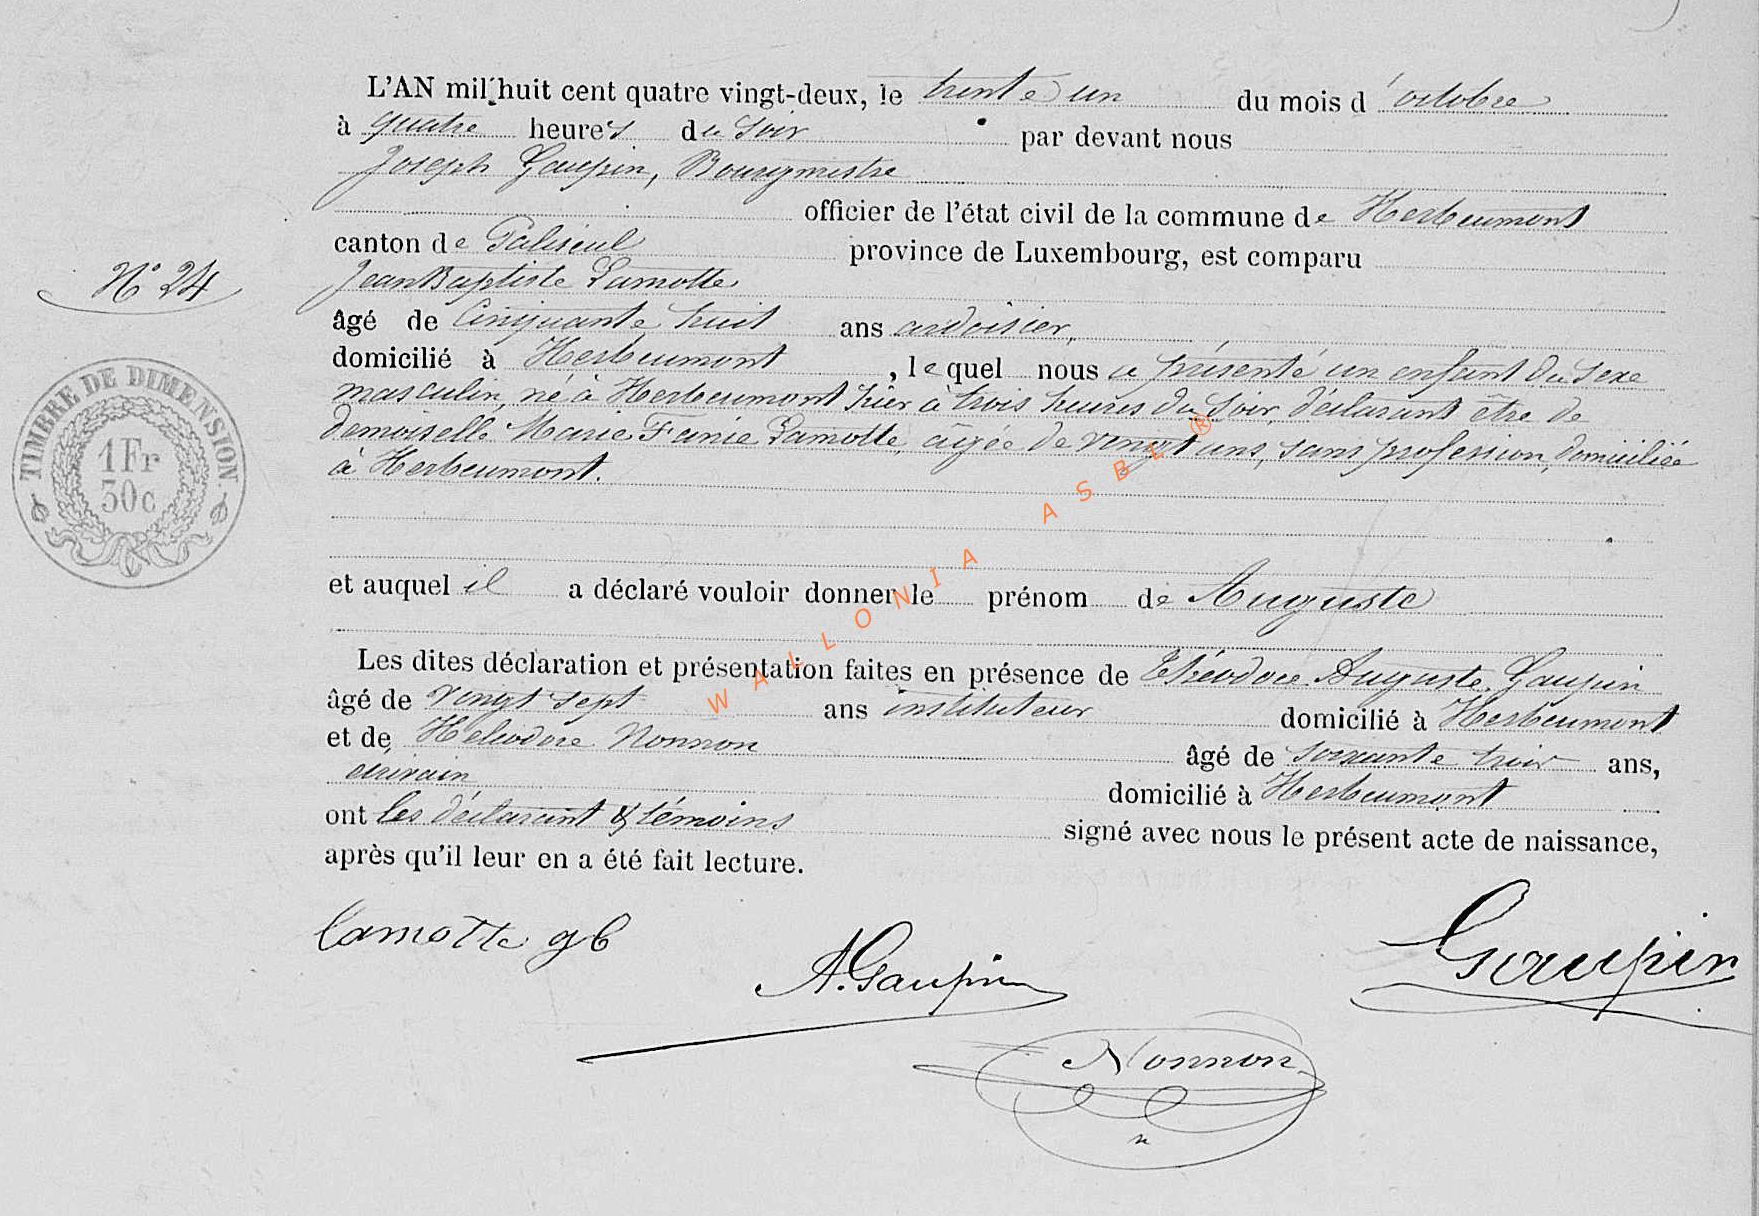 L'AN mil huit cent quatre vingt-deux, le trente un du mois d'octobre
à quatre heures du soir par devant nous
Joseph Gaupin, Bourgmestre
officier de l'état civil de la commune de Herbeumont
canton de Paliseul province de Luxembourg, est comparu
Jean Baptiste Lamotte
N° 24
âgé de Cinquante huit ans ardoisier,
domicilié à Herbeumont, lequel nous a présenté un enfant du sexe
masculin, né à Herbeumont hier à trois heures du soir, déclarant être de
demoiselle Marie Fanie Lamotte, âgée de vingt ans, sans profession, domiciliée
à Herbeumont.
TIMBRE DE DIMENSION.
1Fr
50c
et auquel il a déclaré vouloir donner le prénom de Auguste
Les dites déclaration et présentation faites en présence de Théodore Auguste Gaupin
âgé de vingt sept ans instituteur domicilié à Herbeumont
et de Héliodore Nonnon âgé de soixante trois ans,
écrivain domicilié à Herbeumont
ont les déclarant & témoins signé avec nous le présent acte de naissance,
après qu'il leur en a été fait lecture.
Lamotte gb
A. Gaupin
Gaupin
Nonnon
WALLONIA ASBL ®